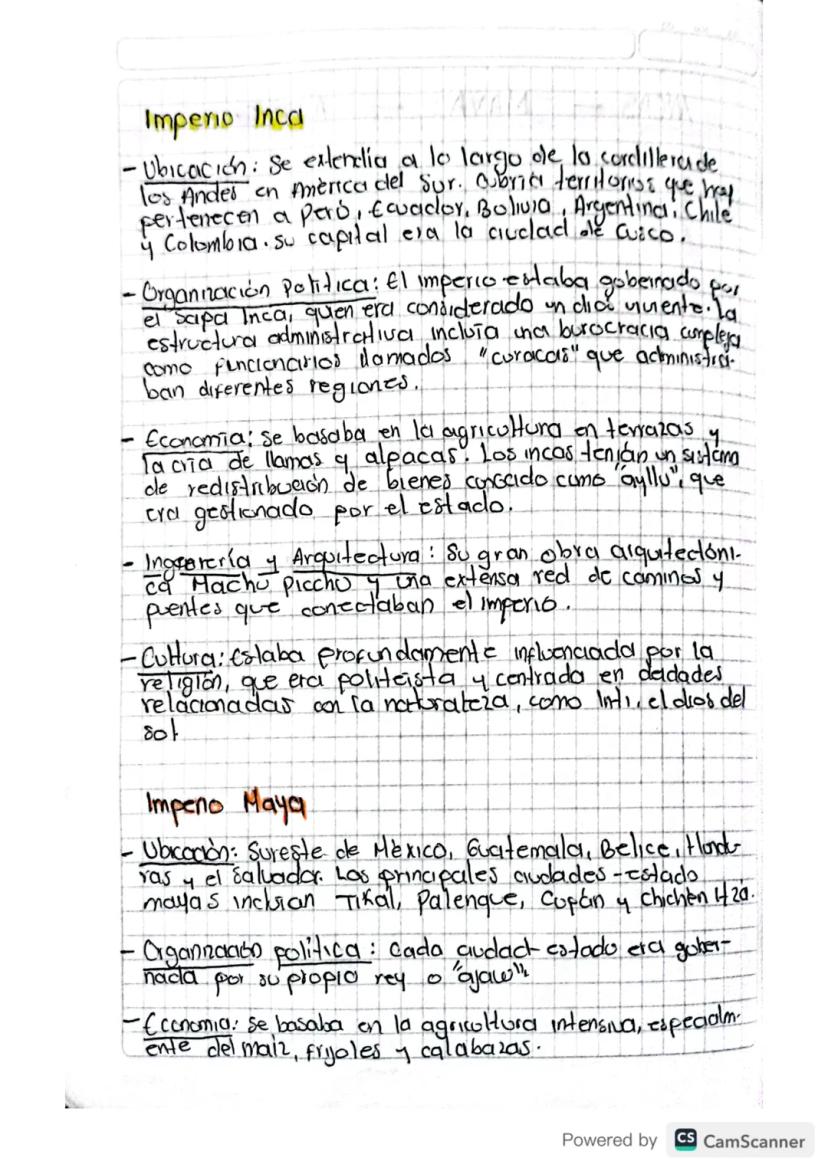 Imperio Inca
- Ubicación: Se extendía a lo largo de la cordillera de
los Andes en América del Sur. Cubría territorios que hoy
pertenecen a Perú, Ecuador, Bolivia, Argentina, Chile
y Colombia. su capital era la ciudad de Cuzco.
- Organización Política: El imperio estaba gobernado por
el Sapa Inca, quien era considerado un dios viviente. La
estructura administrativa incluía una burocracia compleja
como funcionarios llamados "curacas" que administra-
ban diferentes regiones.
- Economía: Se basaba en la agricultura en terrazas y
la cría de llamas y alpacas. Los incas tenían un sistema
de redistribución de bienes conocido como "ayllu", que
era gestionado por el estado.
- Ingeniería y Arquitectura: Su gran obra arquitectóni-
ca Machu Picchu y una extensa red de caminos y
puentes que conectaban el imperio.
- Cultura: Estaba profundamente influenciada por la
religión, que era politeísta y centrada en deidades
relacionadas con la naturaleza, como Inti, el dios del
sol
Imperio Maya
- Ubicación: Sureste de México, Guatemala, Belice, Hondu
ras y el Salvador. Las principales ciudades-estado
mayas incluían Tikal, Palenque, Copán y Chichén Itzá.
- Organización política: Cada ciudad-estado era gober-
nada por su propio rey o "ajaw"
- Economía: Se basaba en la agricultura intensiva, especialm-
ente del maíz, frijoles y calabazas.
Powered by CS CamScanner